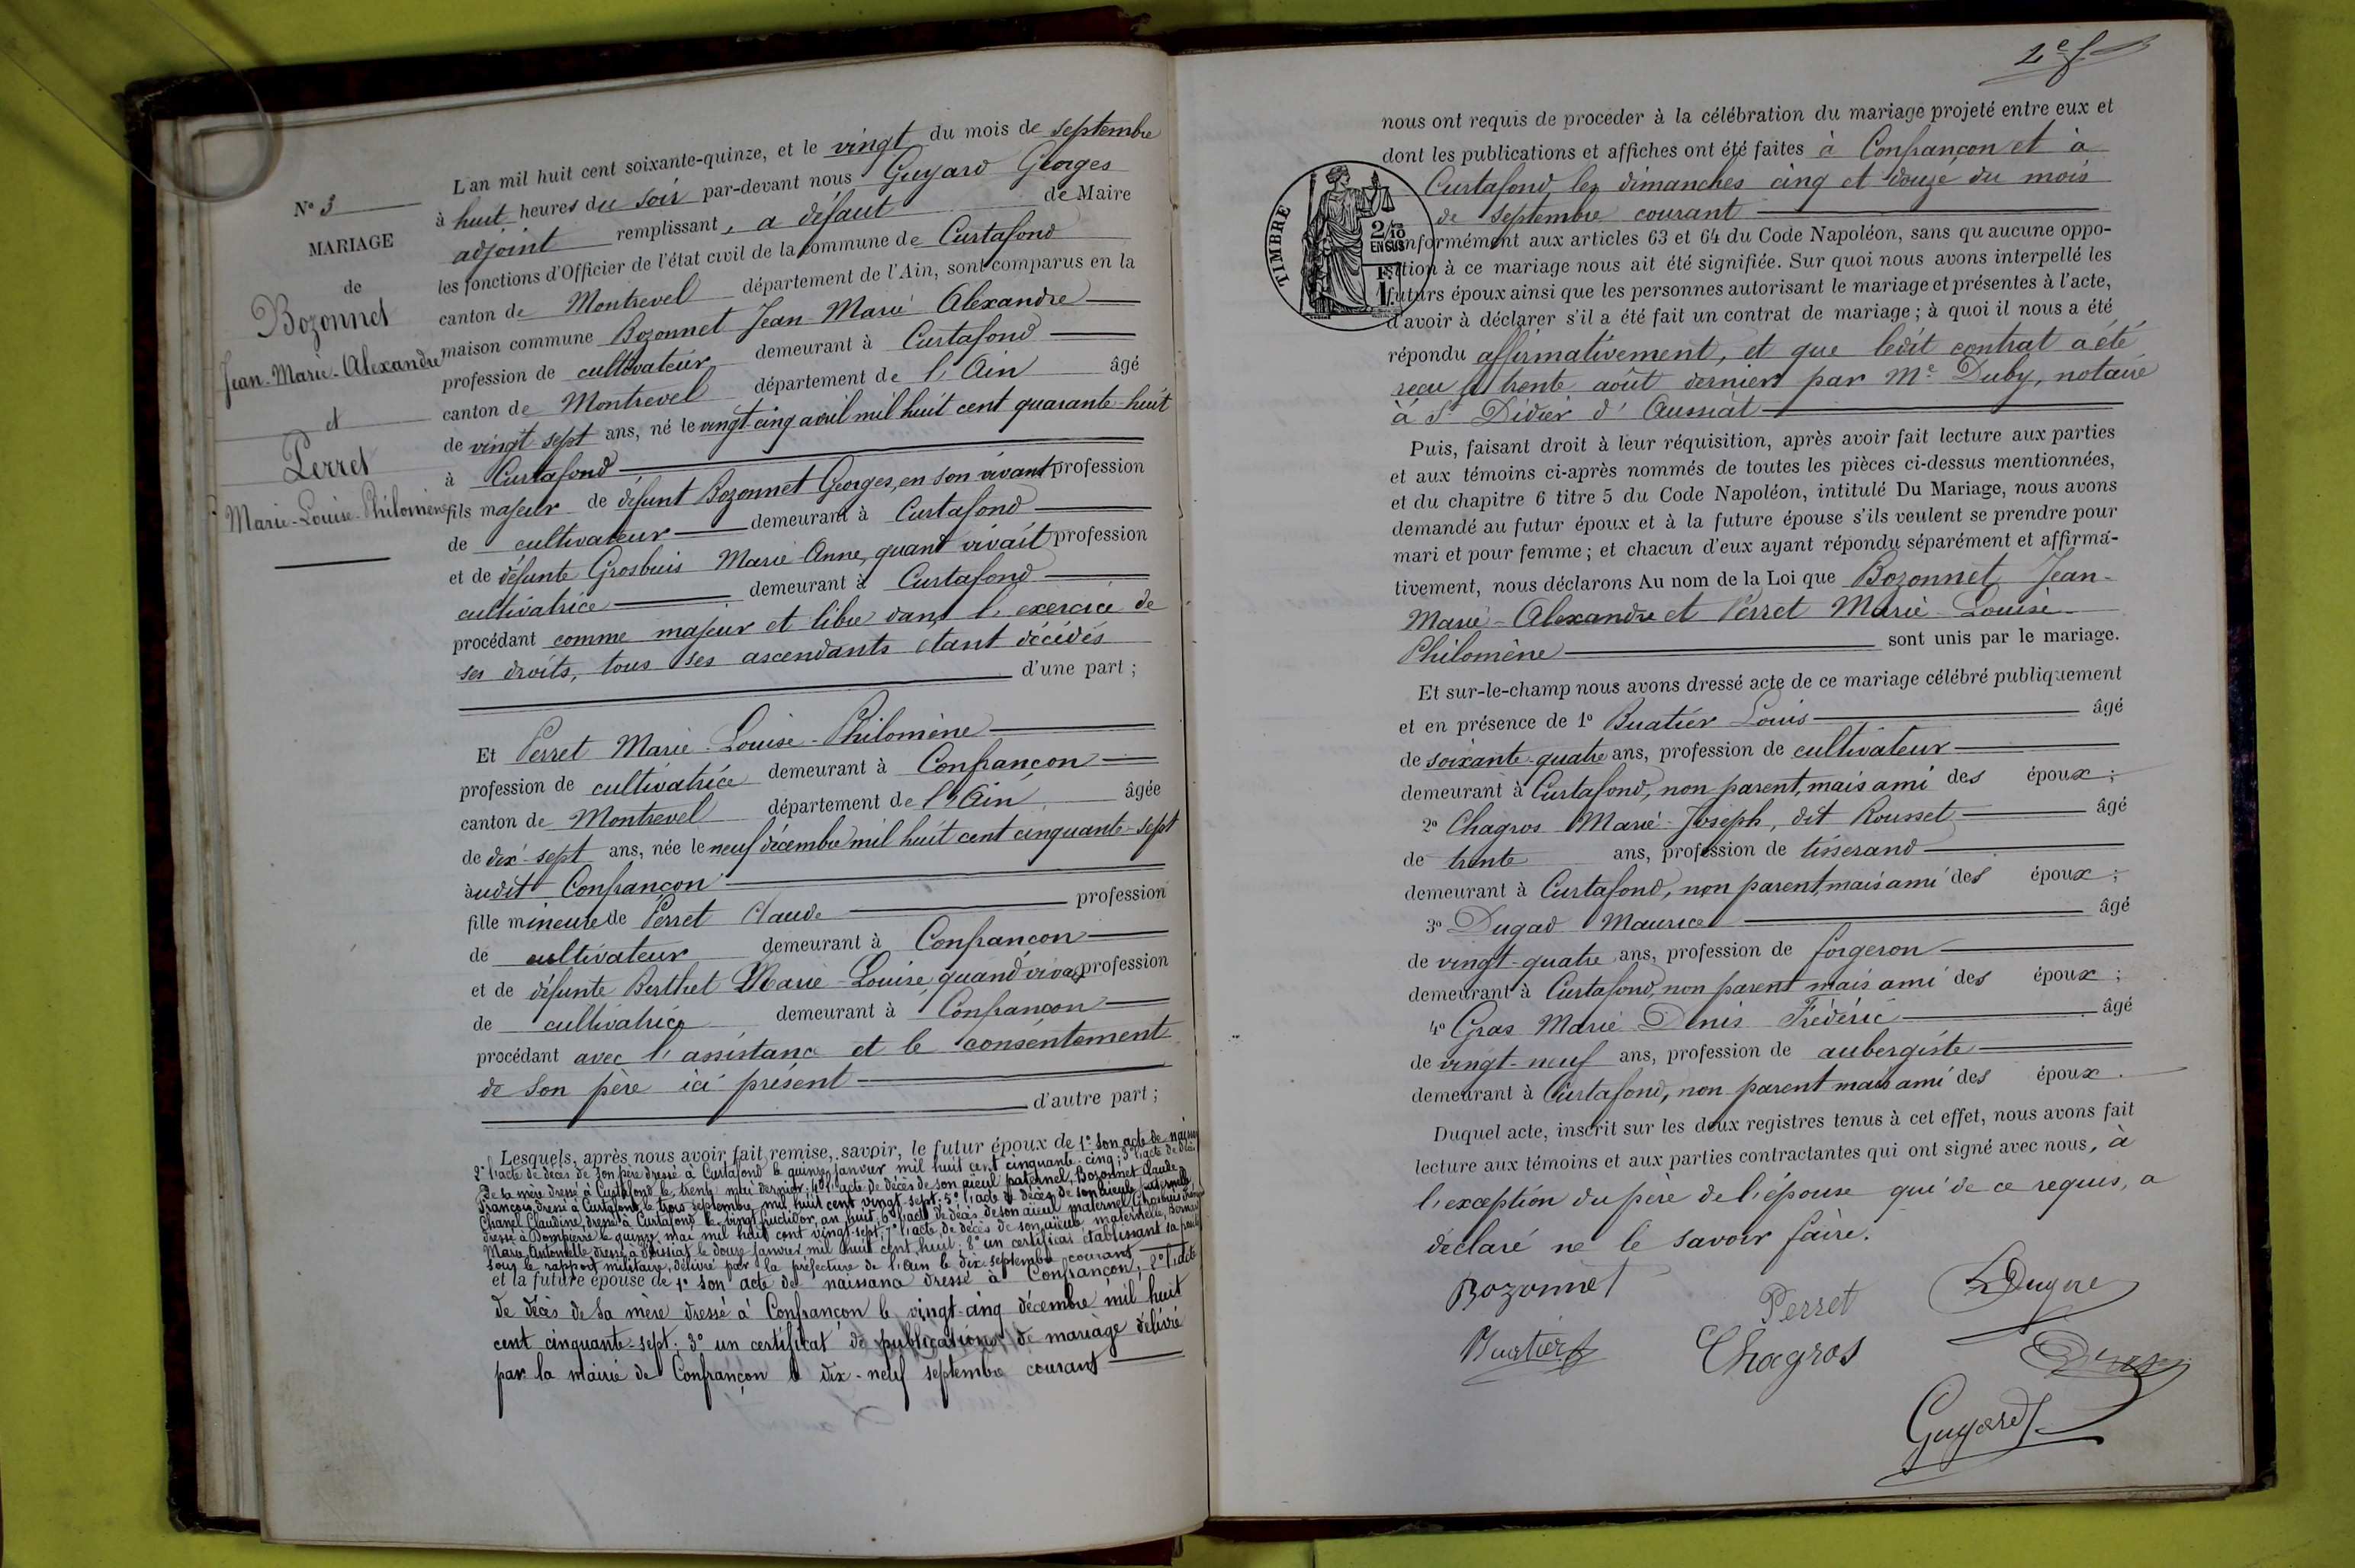 N° 3
MARIAGE
de
Bozonnet
Jean-Marie-Alexandre
et
Perret
Marie-Louise-Philomène
L'an mil huit cent soixante-quinze, et le vingt du mois de septembre
à huit heures du soir par-devant nous Guyard Georges
adjoint remplissant, a défaut de Maire
les fonctions d'Officier de l'état civil de la commune de Curtafond
canton de Montrevel département de l'Ain, sont comparus en la
maison commune Bozonnet Jean Marie Alexandre
profession de cultivateur demeurant à Curtafond
canton de Montrevel département de l'Ain âgé
de vingt sept ans, né le vingt-cinq avril mil huit cent quarante-huit
à Curtafond
fils majeur de défunt Bozonnet Georges, en son vivant profession
de cultivateur demeurant à Curtafond
et de défunte Grosbuis Marie Anne, quant vivait profession
cultivatrice demeurant à Curtafond
procédant comme majeur et libre dans l'exercice de
ses droits, tous ses ascendants étant décédés
d'une part ;
Et Perret Marie-Louise-Philomène
profession de cultivatrice demeurant à Confrançon
canton de Montrevel département de l'Ain âgée
de dix-sept ans, née le neuf décembre mil huit cent cinquante-sept
audit Confrançon
fille mineure de Perret Claude profession
de cultivateur demeurant à Confrançon
et de défunte Berthet Marie-Louise, quand vivait profession
de cultivatrice demeurant à Confrançon
procédant avec l'assistance et le consentement
de son père ici présent
d'autre part ;
Lesquels, après nous avoir fait remise, savoir, le futur époux de 1° son acte de
2° l'acte de décès de son père dressé à Curtafond le quinze janvier mil huit cent cinquante-cinq; 3° l'acte de
de sa mère dressé à Curtafond le trente mai dernier; 4° l'acte de décès de son aïeul paternel, Bozonnet Claude
François, dressé à Curtafond le trois septembre mil huit cent vingt sept; 5° l'acte de décès de son aïeule paternelle
Chanel Claudine, dressé à Curtafond le vingt fructidor, an huit; 6° l'acte de décès de son aïeul maternel, Grosbuis
dressé à Dompierre le quinze mai mil huit cent vingt-sept; 7° l'acte de décès de son aïeule maternelle,
Marie Antoinette, dressé à le douze janvier mil huit cent huit; 8° un certificat établissant sa
sous le rapport militaire, délivré par la préfecture de l'Ain le dix septembre courant
et la future épouse de 1° son acte de naissance dressé à Confrançon; 2° l'acte
de décès de sa mère dressé à Confrançon le vingt-cinq décembre mil huit
cent cinquante-sept. 3° un certificat de publications de mariage délivré
par la mairie de Confrançon le dix-neuf septembre courant
2e f
nous ont requis de procéder à la célébration du mariage projeté entre eux et
dont les publications et affiches ont été faites à Confrançon et à
Curtafond les dimanches cinq et douze du mois
de septembre courant
TIMBRE
2/10
EN SUS
conformément aux articles 63 et 64 du Code Napoléon, sans qu'aucune oppo-
sition à ce mariage nous ait été signifiée. Sur quoi nous avons interpellé les
futurs époux ainsi que les personnes autorisant le mariage et présentes à l'acte,
d'avoir à déclarer s'il a été fait un contrat de mariage ; à quoi il nous a été
répondu affirmativement, et que ledit contrat a été
reçu le trente août dernier par Me Duby, notaire
à St Didier d'Aussiat
Puis, faisant droit à leur réquisition, après avoir fait lecture aux parties
et aux témoins ci-après nommés de toutes les pièces ci-dessus mentionnées,
et du chapitre 6 titre 5 du Code Napoléon, intitulé Du Mariage, nous avons
demandé au futur époux et à la future épouse s'ils veulent se prendre pour
mari et pour femme ; et chacun d'eux ayant répondu séparément et affirma-
tivement, nous déclarons Au nom de la Loi que Bozonnet Jean-
Marie-Alexandre et Perret Marie-Louise
Philomène sont unis par le mariage.
Et sur-le-champ nous avons dressé acte de ce mariage célébré publiquement
et en présence de 1° Buatier Louis âgé
de soixante-quatre ans, profession de cultivateur
demeurant à Curtafond, non parent, mais ami des époux ;
2° Chagros Marie-Joseph, dit Rousset âgé
de trente ans, profession de tisserand
demeurant à Curtafond, non parent, mais ami des époux ;
3° Dugad Maurice âgé
de vingt-quatre ans, profession de forgeron
demeurant à Curtafond, non parent mais ami des époux ;
4° Gras Marie Denis Frédéric âgé
de vingt-neuf ans, profession de aubergiste
demeurant à Curtafond, non parent mais ami des époux.
Duquel acte, inscrit sur les deux registres tenus à cet effet, nous avons fait
lecture aux témoins et aux parties contractantes qui ont signé avec nous, à
l'exception du père de l'épouse qui de ce requis, a
déclaré ne le savoir faire.
Bozonnet
Perret
Buatier
Chagros
Guyard